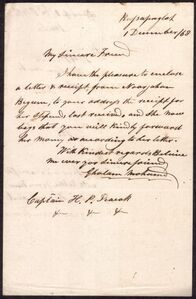 1 December /68
My Sincere Friend
I have the pleasure to enclose
a letter & receipt from
Begum, to your address the receipt for
her stipend last received, and she now
begs that you will kindly forward
her money according to her letter.
With Kindest regards Believe
me ever your sincere friend,
Gholam Mohumed
Captain H. P. Peacock